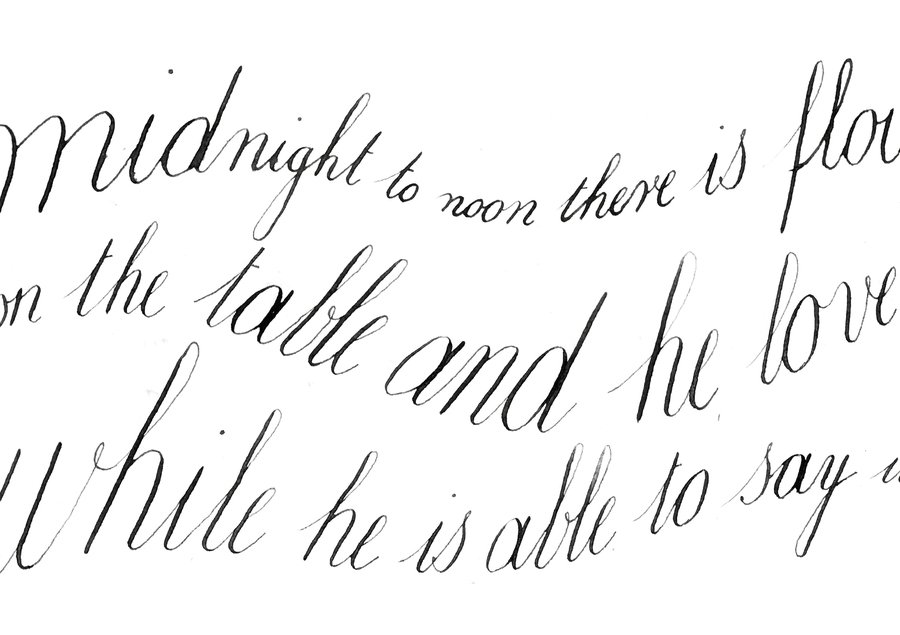 midnight to noon there is flou
on the table and he love
While he is able to say i